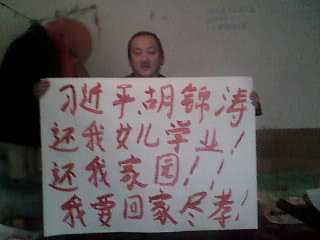 习近平、胡锦涛
还我女儿学业！
还我家园！！
我要回家尽孝！